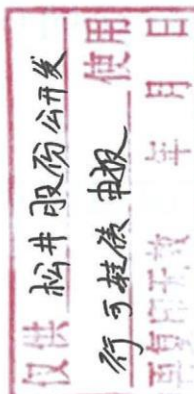 仅供 松井股份公开发
行可转债 申报 使用
再复印无效 年 月 日